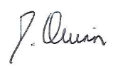 J. Quinn